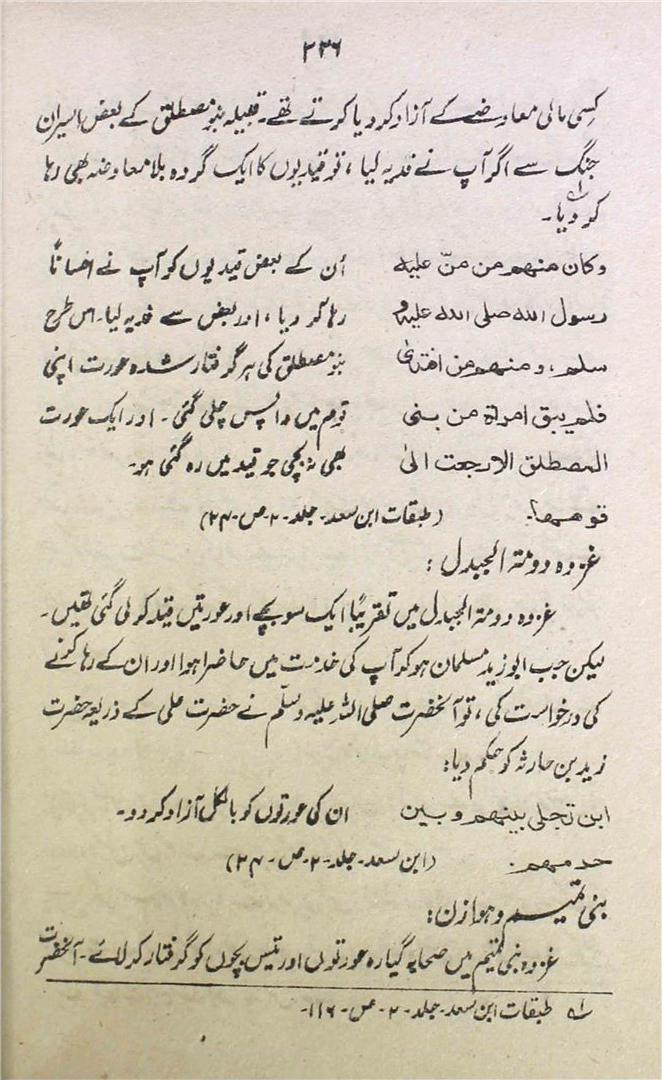 ۲۳۶
کسی مالی معاوضے کے آزاد کر دیا کرتے تھے۔ قبیلہ بنو مصطلق کے بعض اسیران
جنگ سے اگر آپ نے فدیہ لیا، تو قیدیوں کا ایک گروہ بلا معاوضہ بھی رہا
کر دیا۔ لہ
وکان منہم من منّ علیہ
اُن کے بعض قیدیوں کو آپ نے احساناً
رسول اللہ صلی اللہ علیہ و
رہا کر دیا، اور بعض سے فدیہ لیا۔ اس طرح
سلم، و منہم من افتدیٰ
بنو مصطلق کی ہر گرفتار شدہ عورت اپنی
فلم یبق امراۃ من بنی
قوم میں واپس چلی گئی۔ اور ایک عورت
المصطلق الا رجعت الیٰ
بھی نہ بچی جو قید میں رہ گئی ہو۔
قومہا۔
(طبقات ابن سعد۔ جلد۔ ۲۔ ص۔ ۲۴)
غزوہ دومتہ الجندل :
غزوہ دومتہ الجندل میں تقریباً ایک سو بچے اور عورتیں قید کر لی گئی تھیں۔
لیکن جب ابوزید مسلمان ہو کر آپ کی خدمت میں حاضر ہوا اور ان کے رہا کرنے
کی درخواست کی، تو آنحضرت صلی اللہ علیہ وسلّم نے حضرت علی کے ذریعہ حضرت
زید بن حارثہ کو حکم دیا:
ابن تجلی بینہم و بین
ان کی عورتوں کو بالکل آزاد کر دو۔
حد مہم۔
(ابن سعد۔ جلد۔ ۲۔ ص۔ ۲۴)
بنی تمیم و ہوازن:
غزوہ بنی تمیم میں صحابہ گیارہ عورتوں اور تیس بچوں کو گرفتار کر لائے۔ آنحضرت
لہ طبقات ابن سعد۔ جلد۔ ۲۔ ص۔ ۱۱۶۔